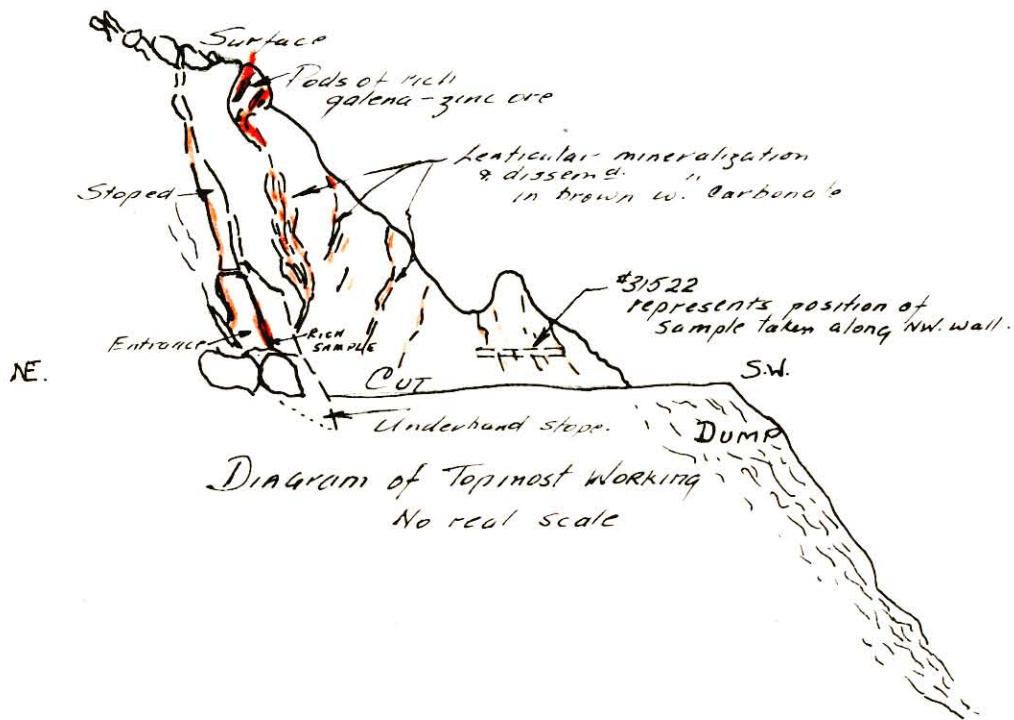 Surface
Pods of rich
galena-zinc ore
Lenticular mineralization
& dissemd. "
in brown w. Carbonate
Stoped
#31522
represents position of
sample taken along NW. wall.
Entrance
RICH
SAMPLE
NE.
CUT
S.W.
Underhand stope.
DUMP
Diagram of Topmost Working
No real scale